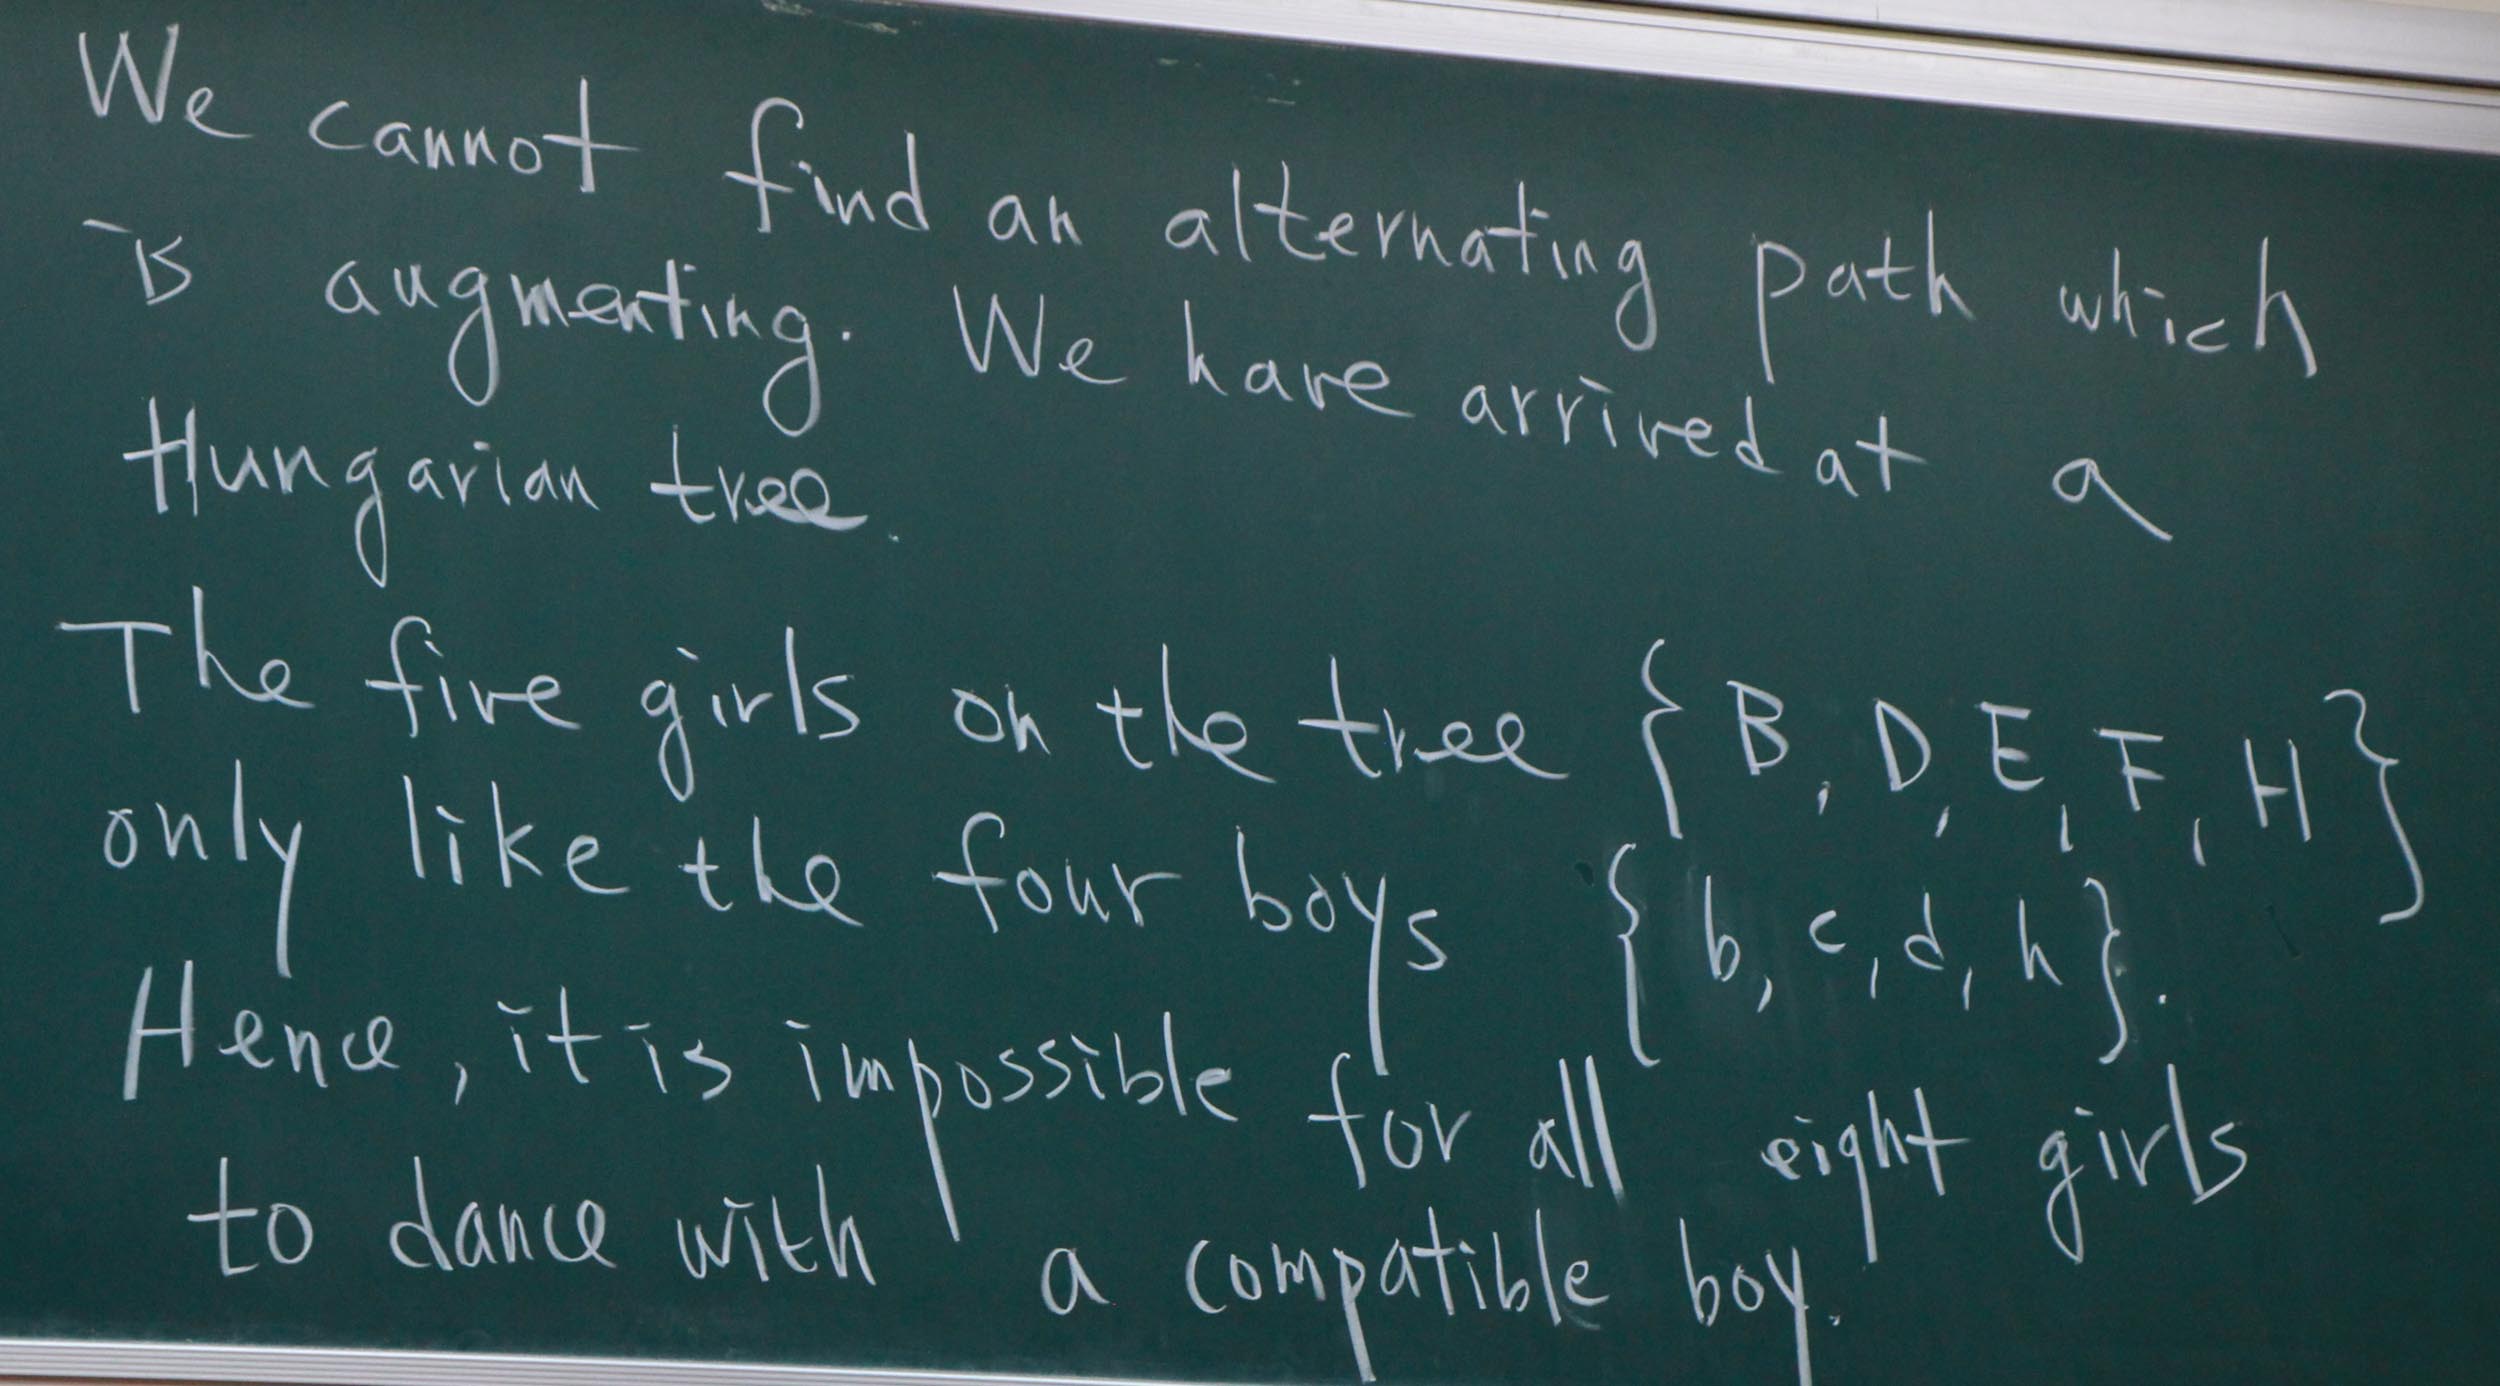 We cannot find an alternating path which
is augmenting. We have arrived at a
Hungarian tree.
The five girls on the tree {B, D, E, F, H}
only like the four boys {b, c, d, h}.
Hence, it is impossible for all eight girls
to dance with a compatible boy.